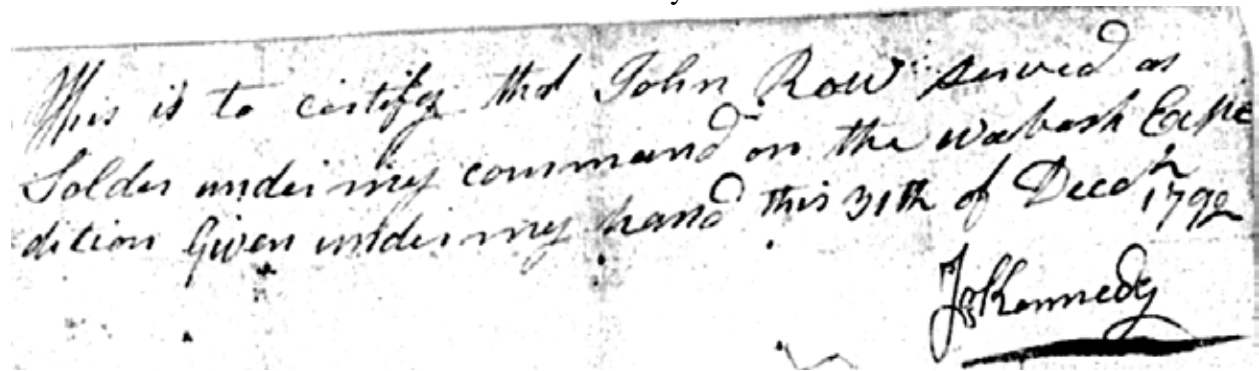 This is to certify that John Row served as
Solder under my command on the wabash Expe
dition Given under my hand this 31th of Decr 1792
Js Kennedy